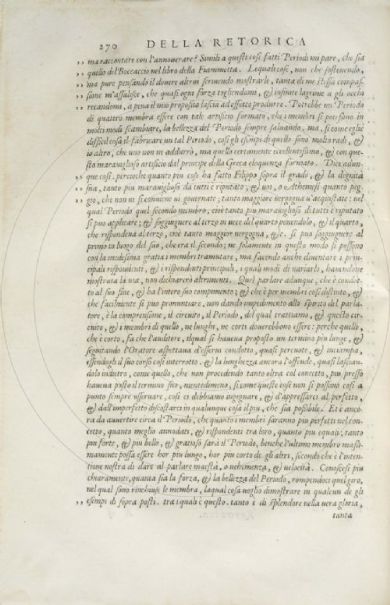 270 DELLA RETORICA
ma raccontare con l'annoverare? Simili a questi così fatti Periodi mi pare, che sia
quello del Boccaccio nel libro della Fiammetta. Lequali cose, non che sostenendo,
ma pure pensando il dovere altrui scrivendo mostrarle, tanta di me stessa compas-
sione m'assalisce, che quasi ogni forza togliendomi, & infinite lagrime a gli occhi
recandomi, a pena il mio proposito lascia ad effetto producere. Potrebbe un Periodo
di quattro membra essere con tale artificio formato, che i membri si potessono in
molti modi scambiare, la bellezza del Periodo sempre salvando, ma, si come egli è
difficil cosa il fabricare un tal Periodo, così gli esempi di quello sono molto radi, &
io altro, che uno non ne addurrò, ma quello certamente eccellentissimo, & con que-
sto maraviglioso artificio dal principe della Greca eloquenza formato. Dice adun-
que così. percioche quanto più cose ha fatto Filippo sopra il grado, & la dignità
sua, tanto più maraviglioso da tutti è riputato, & voi, o Atheniesi quanto peg-
gio, che non si conviene vi governate; tanto maggiore vergogna v'acquistate: nel
qual Periodo quel secondo membro, cioè tanto più maraviglioso da tutti è riputato
si può applicare; & soggiugnere al terzo in vece del quarto ponendolo, & il quarto,
che rispondeva al terzo, cioè tanto maggior vergogna, &c. si può soggiugnere al
primo in luogo del suo, che era il secondo; ne solamente in questo modo si possono
con la medesima gratia i membri tramutare, ma facendo anche diventare i prin-
cipali rispondenti, & i rispondenti principali, i quali modi di variarli, havendone
mostrata la via, non dichiarerò altramente. Quel parlare adunque, che è condot-
to al suo fine, & ha l'intero suo componimento, & che è per membri così distinto, &
che facilmente si può pronuntiare, non dando impedimento allo spirito del parla-
tore, è la comprensione, il circuito, il Periodo, del qual trattiamo, & questo cir-
cuito, & i membri di quello, ne lunghi, ne corti dovrebbono essere: perche quello,
che è corto, fa che l'auditore, il qual si haveva proposto un termino più lunge, &
seguitando l'Oratore aspettava d'esservi condotto, quasi percuote, & inciampa,
essendogli il suo corso così interrotto. & la lunghezza ancora l'offende, quasi lascian-
dolo indietro, come quello, che non procedendo tanto oltra col concetto, più presso
haveva posto il termino suo, nientedimeno, si come queste cose non si possono così a
punto sempre osservare, così ci dobbiamo ingegnare, & d'appressarci al perfetto,
& dall'imperfetto discostarci in qualunque cosa il più, che sia possibile. Et è anco-
ra da avvertire circa il Periodo, che quanto i membri saranno più perfetti nel con-
cetto, quanto meglio annodati, & rispondenti tra loro, quanto più eguali; tanto
più forte, & più bello, & gratioso sarà il Periodo, benche l'ultimo membro massi-
mamente possa essere hor più lungo, hor più corto de gli altri, secondo che è l'inten-
tione nostra di dare al parlare maestà, o vehemenza, & velocità. Conoscesi più
chiaramente, quanta sia la forza, & la bellezza del Periodo, rompendosi quel giro,
nel qual sono rinchiuse le membra, la qual cosa voglio dimostrare in qualcun de gli
esempi di sopra posti. tra i quali è questo. tanto è di splendore nella vera gloria,
tanta